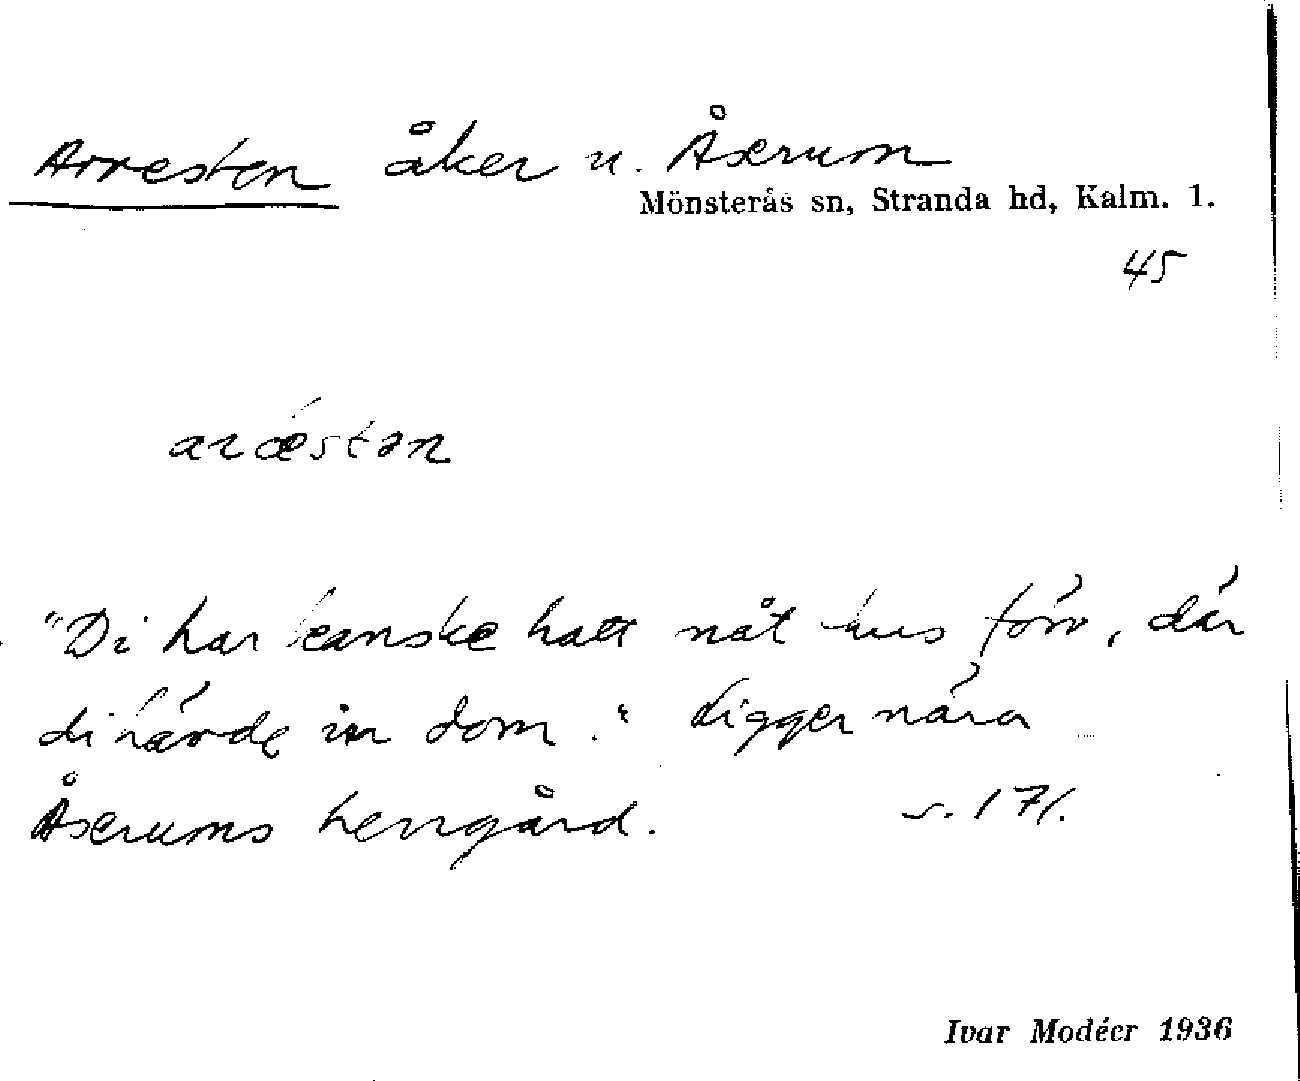 Arresten åker u. Åserum
Mönsterås sn, Stranda hd, Kalm. l.
45
aræstən
"Di har kanske hatt nåt hus förr, där
di härde in dom." Ligger nära
Åserums herrgård. s. 171.
Ivar Modéer 1936